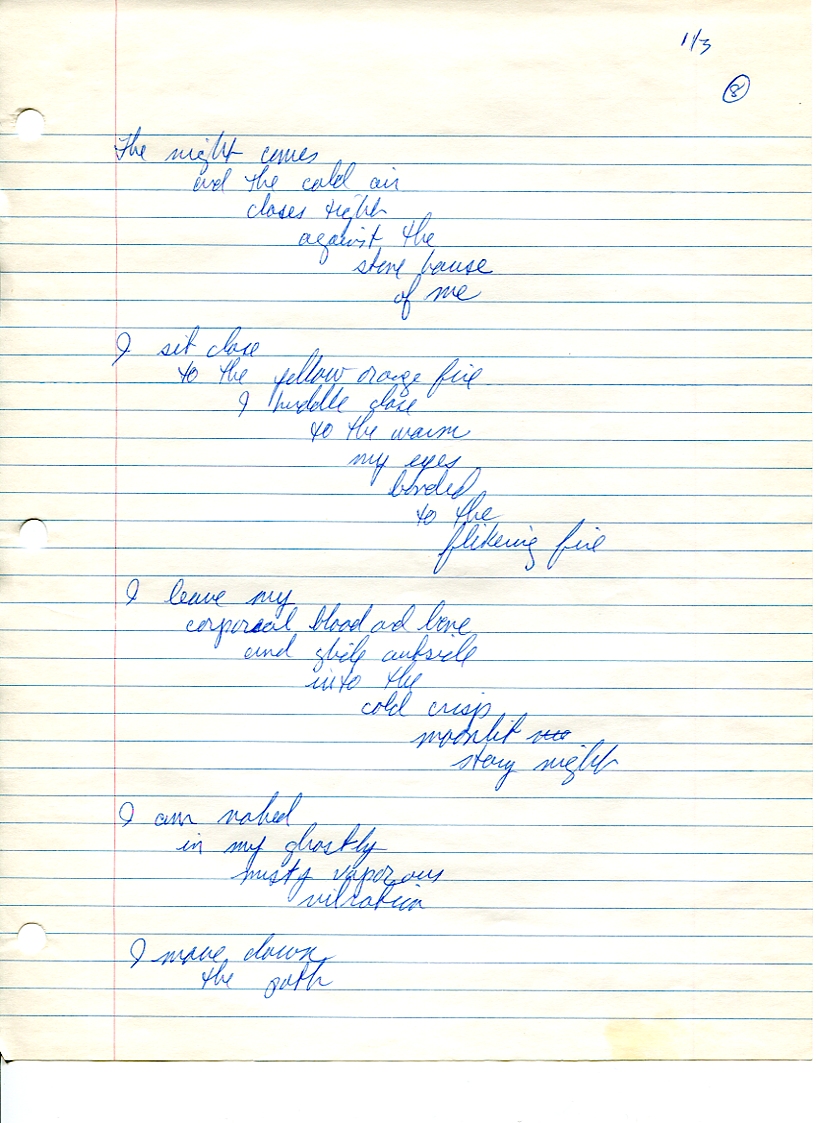 1/3
8
The night comes
and the cold air
closes tight
against the
stone house
of me
I sit close
to the yellow orange fire
I huddle close
to the warm
my eyes
bonded
to the
flikering fire
I leave my
corporeal blood and bone
and glide outside
into the
cold crisp
moonlit
stary night
I am naked
in my ghostly
misty vaporous
vibration
I move down
the path